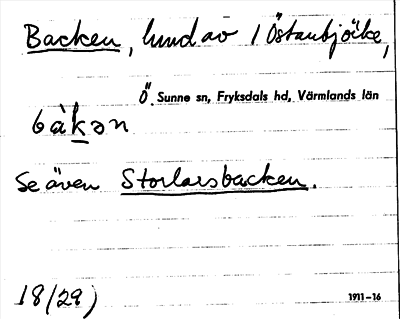 Backen, lund av 1 Östanbjörke,
Ö. Sunne sn, Fryksdals hd, Värmlands län
bàkən
Se även Storlarsbacken.
18/29)
1911-16